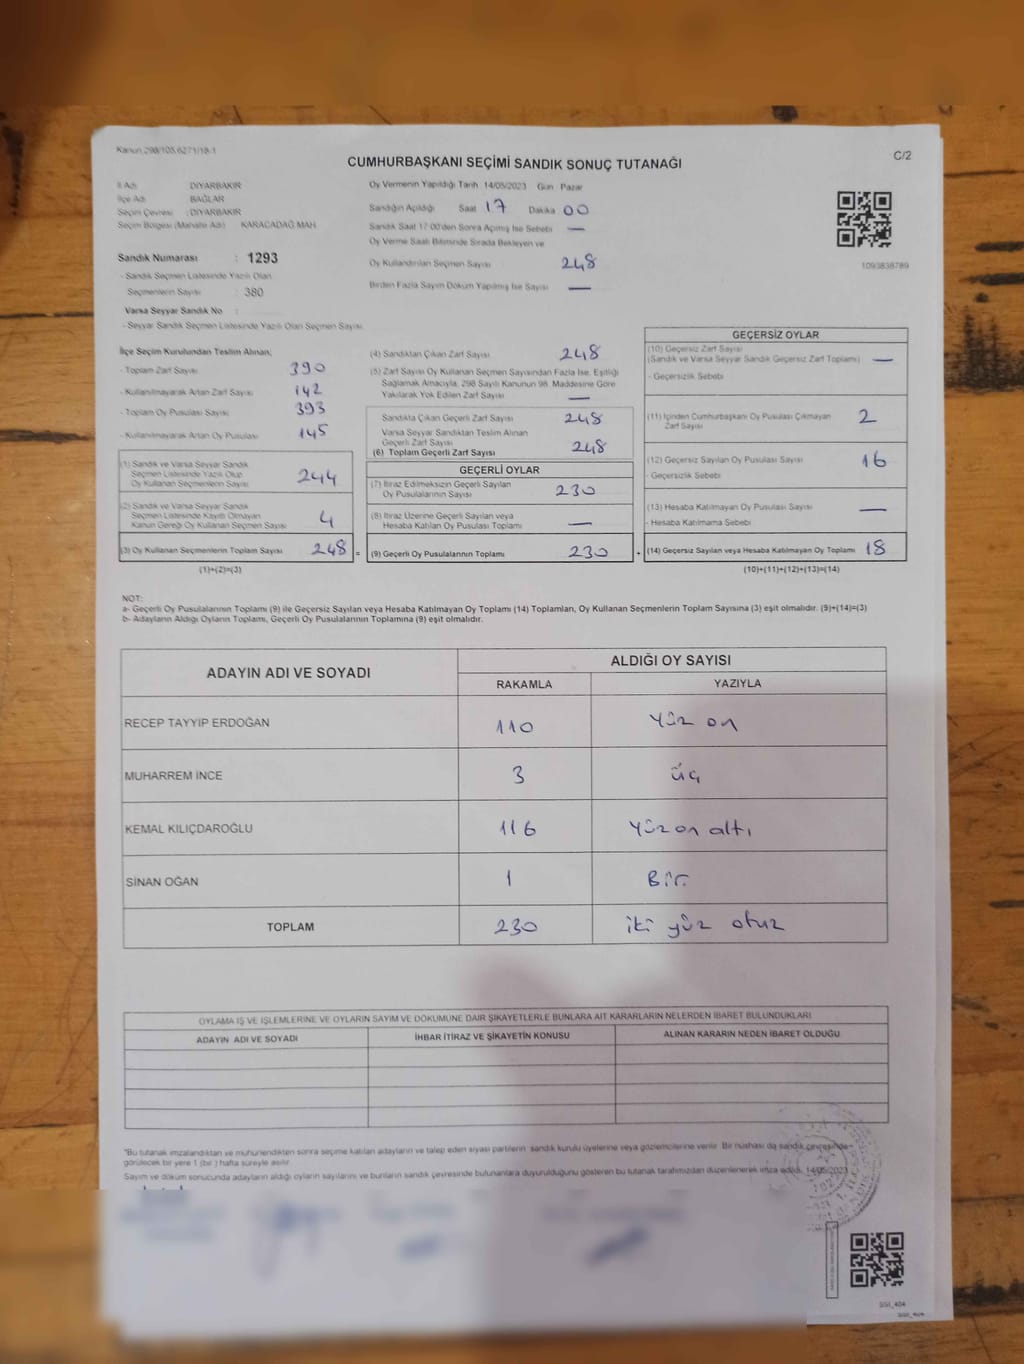 Kanun 298/105,6271/18-1
CUMHURBAŞKANI SEÇİMİ SANDIK SONUÇ TUTANAĞI
C/2
İl Adı DİYARBAKIR
İlçe Adı BAĞLAR
Seçim Çevresi : DİYARBAKIR
Seçim Bölgesi (Mahalle Adı) KARACADAĞ MAH.
Sandık Numarası : 1293
- Sandık Seçmen Listesinde Yazılı Olan
Seçmenlerin Sayısı : 380
Varsa Seyyar Sandık No :
- Seyyar Sandık Seçmen Listesinde Yazılı Olan Seçmen Sayısı
Oy Vermenin Yapıldığı Tarih 14/05/2023 Gün Pazar
Sandığın Açıldığı Saat 17 Dakika 00
Sandık Saat 17:00'den Sonra Açılmış İse Sebebi —
Oy Verme Saati Bitiminde Sırada Bekleyen ve
Oy Kullandırılan Seçmen Sayısı 248
Birden Fazla Sayım Döküm Yapılmış İse Sayısı —
1093838789
İlçe Seçim Kurulundan Teslim Alınan;
- Toplam Zarf Sayısı 390
- Kullanılmayarak Artan Zarf Sayısı 142
- Toplam Oy Pusulası Sayısı 393
- Kullanılmayarak Artan Oy Pusulası 145
(1) Sandık ve Varsa Seyyar Sandık
Seçmen Listesinde Yazılı Olup
Oy Kullanan Seçmenlerin Sayısı 244
(2) Sandık ve Varsa Seyyar Sandık
Seçmen Listesinde Kayıtlı Olmayan
Kanun Gereği Oy Kullanan Seçmen Sayısı 4
(3) Oy Kullanan Seçmenlerin Toplam Sayısı 248 =
(1)+(2)=(3)
(4) Sandıktan Çıkan Zarf Sayısı 248
(5) Zarf Sayısı Oy Kullanan Seçmen Sayısından Fazla İse, Eşitliği
Sağlamak Amacıyla, 298 Sayılı Kanunun 98. Maddesine Göre
Yakılarak Yok Edilen Zarf Sayısı —
Sandıkta Çıkan Geçerli Zarf Sayısı 248
Varsa Seyyar Sandıktan Teslim Alınan
Geçerli Zarf Sayısı
(6) Toplam Geçerli Zarf Sayısı 248
GEÇERLİ OYLAR
(7) İtiraz Edilmeksizin Geçerli Sayılan
Oy Pusulalarının Sayısı 230
(8) İtiraz Üzerine Geçerli Sayılan veya
Hesaba Katılan Oy Pusulası Toplamı —
(9) Geçerli Oy Pusulalarının Toplamı 230 +
GEÇERSİZ OYLAR
(10) Geçersiz Zarf Sayısı
(Sandık ve Varsa Seyyar Sandık Geçersiz Zarf Toplamı) —
- Geçersizlik Sebebi
(11) İçinden Cumhurbaşkanı Oy Pusulası Çıkmayan
Zarf Sayısı 2
(12) Geçersiz Sayılan Oy Pusulası Sayısı 16
- Geçersizlik Sebebi
(13) Hesaba Katılmayan Oy Pusulası Sayısı —
- Hesaba Katılmama Sebebi
(14) Geçersiz Sayılan veya Hesaba Katılmayan Oy Toplamı 18
(10)+(11)+(12)+(13)=(14)
NOT:
a- Geçerli Oy Pusulalarının Toplamı (9) ile Geçersiz Sayılan veya Hesaba Katılmayan Oy Toplamı (14) Toplamları, Oy Kullanan Seçmenlerin Toplam Sayısına (3) eşit olmalıdır. (9)+(14)=(3)
b- Adayların Aldığı Oyların Toplamı, Geçerli Oy Pusulalarının Toplamına (9) eşit olmalıdır.
ADAYIN ADI VE SOYADI ALDIĞI OY SAYISI
RAKAMLA YAZIYLA
RECEP TAYYİP ERDOĞAN 110 yüz on
MUHARREM İNCE 3 üç
KEMAL KILIÇDAROĞLU 116 yüz on altı
SİNAN OĞAN 1 Bir
TOPLAM 230 iki yüz otuz
OYLAMA İŞ VE İŞLEMLERİNE VE OYLARIN SAYIM VE DÖKÜMÜNE DAİR ŞİKAYETLERLE BUNLARA AİT KARARLARIN NELERDEN İBARET BULUNDUKLARI
ADAYIN ADI VE SOYADI İHBAR İTİRAZ VE ŞİKAYETİN KONUSU ALINAN KARARIN NEDEN İBARET OLDUĞU
"Bu tutanak imzalandıktan ve mühürlendikten sonra seçime katılan adayların ve talep eden siyasi partilerin sandık kurulu üyelerine veya gözlemcilerine verilir. Bir nüshası da sandık çevresinde
görülecek bir yere 1 (bir) hafta süreyle asılır.
Sayım ve döküm sonucunda adayların aldığı oyların sayılarını ve bunların sandık çevresinde bulunanlara duyurulduğunu gösteren bu tutanak tarafımızdan düzenlenerek imza edildi. 14/05/2023
SSI_404